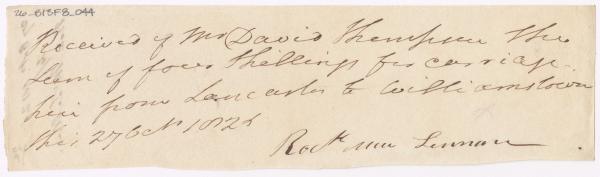 26-B13F8-044
Received of Mr David Thompson the
Sum of four Shellings for carriage
from Lancaster to Williamstown
this 27 Oct
Rock Mc Lennan